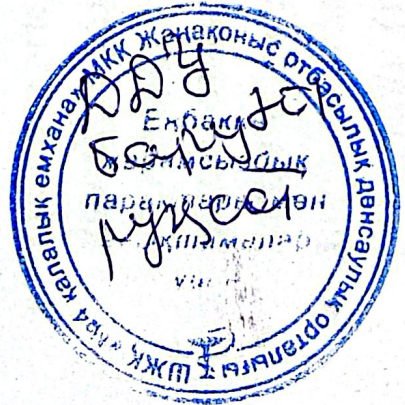 ШЖҚ «№4 қалалық емхана» МКК Жаңақоныс отбасылық денсаулық орталығы
Еңбакқа
жарамсыздық
парақтары мен
анықтамалар
үшін
ДДУ
баруға
рұқсат